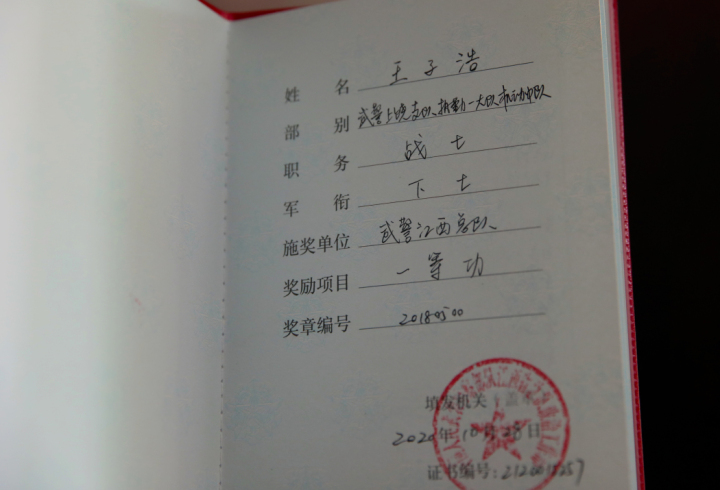 姓 名 王子浩
部 别 武警上饶支队执勤一大队机动中队
职 务 战士
军 衔 下士
施奖单位 武警江西总队
奖励项目 一等功
奖章编号 20180500
填发机关
2020年10月28日
证书编号: